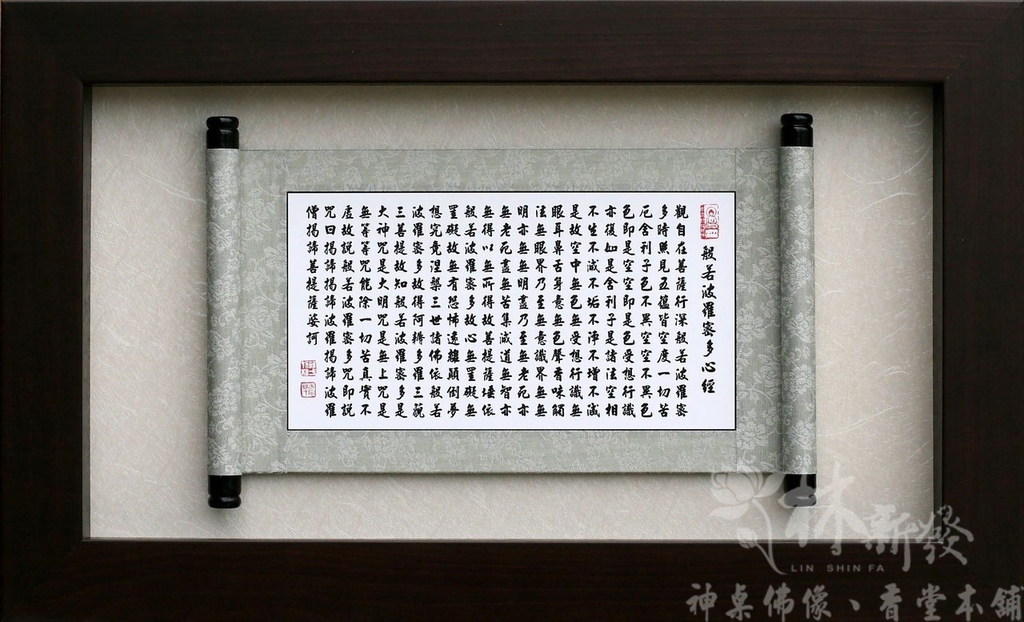 般若波羅密多心經
觀自在菩薩行深般若波羅密
多時照見五蘊皆空度一切苦
厄舍利子色不異空空不異色
色即是空空即是色受想行識
亦復如是舍利子是諸法空相
不生不滅不垢不淨不增不減
是故空中無色無受想行識無
眼耳鼻舌身意無色聲香味觸
法無眼界乃至無意識界無無
明亦無無明盡乃至無老死亦
無老死盡無苦集滅道無智亦
無得以無所得故菩提薩埵依
般若波羅密多故心無罣礙無
罣礙故無有恐怖遠離顛倒夢
想究竟涅槃三世諸佛依般若
波羅密多故得阿耨多羅三藐
三菩提故知般若波羅密多是
大神咒是大明咒是無上咒是
無等等咒能除一切苦真實不
虛故說般若波羅密多咒即說
咒曰揭諦揭諦波羅揭諦波羅
僧揭諦菩提薩婆訶
林新發
LIN SHIN FA
神桌佛像、香堂本舖